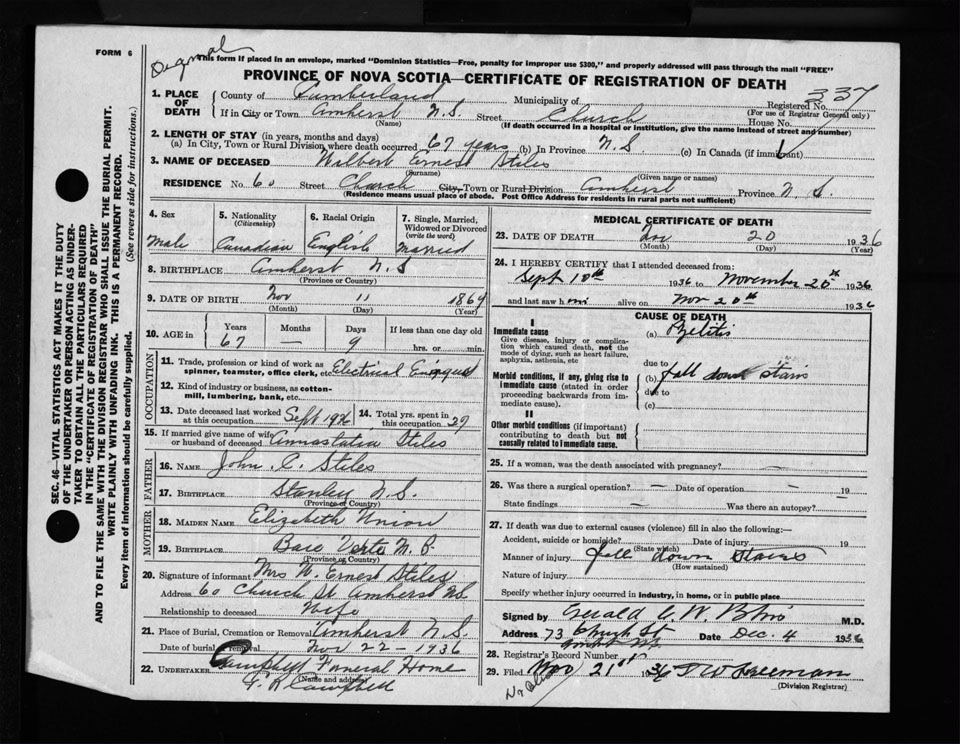 FORM 6
Original
This form if placed in an envelope, marked "Dominion Statistics—Free, penalty for improper use $300," and properly addressed will pass through the mail "FREE"
PROVINCE OF NOVA SCOTIA—CERTIFICATE OF REGISTRATION OF DEATH
1. PLACE OF DEATH
County of Cumberland Municipality of Registered No. 337
(For use of Registrar General only)
If in City or Town Amherst N.S. Street Church House No.
(Name) (If death occurred in a hospital or institution, give the name instead of street and number)
2. LENGTH OF STAY (in years, months and days)
(a) In City, Town or Rural Division where death occurred 67 years (b) In Province N.S. (c) In Canada (if immigrant)
3. NAME OF DECEASED Wilbert Ernest Stiles
(Surname) (Given name or names)
RESIDENCE No. 60 Street Church City, Town or Rural Division Amherst Province N.S.
(Residence means usual place of abode. Post Office Address for residents in rural parts not sufficient)
4. Sex
Male
5. Nationality
(Citizenship)
Canadian
6. Racial Origin
English
7. Single, Married, Widowed or Divorced
(write the word)
Married
8. BIRTHPLACE Amherst N.S
(Province or Country)
9. DATE OF BIRTH Nov 11 1869
(Month) (Day) (Year)
10. AGE in
Years Months Days If less than one day old
67 — 9 hrs. or min.
OCCUPATION
11. Trade, profession or kind of work as spinner, teamster, office clerk, etc. Electrical
12. Kind of industry or business, as cotton-mill, lumbering, bank, etc.
13. Date deceased last worked at this occupation Sept
14. Total yrs. spent in this occupation 29
15. If married give name of wife or husband of deceased Annastatia Stiles
FATHER
16. NAME John C. Stiles
17. BIRTHPLACE Stanley N.S.
(Province or Country)
MOTHER
18. MAIDEN NAME Elizabeth
19. BIRTHPLACE Baie Verte N.B.
(Province or Country)
20. Signature of informant Mrs W. Ernest Stiles
Address 60 Church St Amherst NS
Relationship to deceased Wife
21. Place of Burial, Cremation or Removal Amherst N.S.
Date of burial or removal Nov 22 - 1936
22. UNDERTAKER Campbell Funeral Home
(Name and address)
Campbell
MEDICAL CERTIFICATE OF DEATH
23. DATE OF DEATH Nov 20 1936
(Month) (Day) (Year)
24. I HEREBY CERTIFY that I attended deceased from:
Sept 10th 1936 to November 20th 1936
and last saw him alive on Nov 20th 1936
CAUSE OF DEATH
I
Immediate cause
Give disease, injury or complication which caused death, not the mode of dying, such as heart failure, asphyxia, asthenia, etc
(a)
due to
Morbid conditions, if any, giving rise to immediate cause (stated in order proceeding backwards from immediate cause).
(b) fall down stairs
due to
(c)
II
Other morbid conditions (if important) contributing to death but not causally related to immediate cause.
25. If a woman, was the death associated with pregnancy? —
26. Was there a surgical operation? — Date of operation — 19
State findings Was there an autopsy?
27. If death was due to external causes (violence) fill in also the following:—
Accident, suicide or homicide? Date of injury 19
(State which)
Manner of injury fall down stairs
(How sustained)
Nature of injury
Specify whether injury occurred in industry, in home, or in public place
Signed by M.D.
Address 73 Church St Date Dec. 4 1936
28. Registrar's Record Number
29. Filed Nov 21st 36
(Division Registrar)
SEC. 46—VITAL STATISTICS ACT MAKES IT THE DUTY OF THE UNDERTAKER OR PERSON ACTING AS UNDERTAKER TO OBTAIN ALL THE PARTICULARS REQUIRED IN THE "CERTIFICATE OF REGISTRATION OF DEATH" AND TO FILE THE SAME WITH THE DIVISION REGISTRAR WHO SHALL ISSUE THE BURIAL PERMIT.
WRITE PLAINLY WITH UNFADING INK. THIS IS A PERMANENT RECORD.
Every item of information should be carefully supplied. (See reverse side for instructions.)